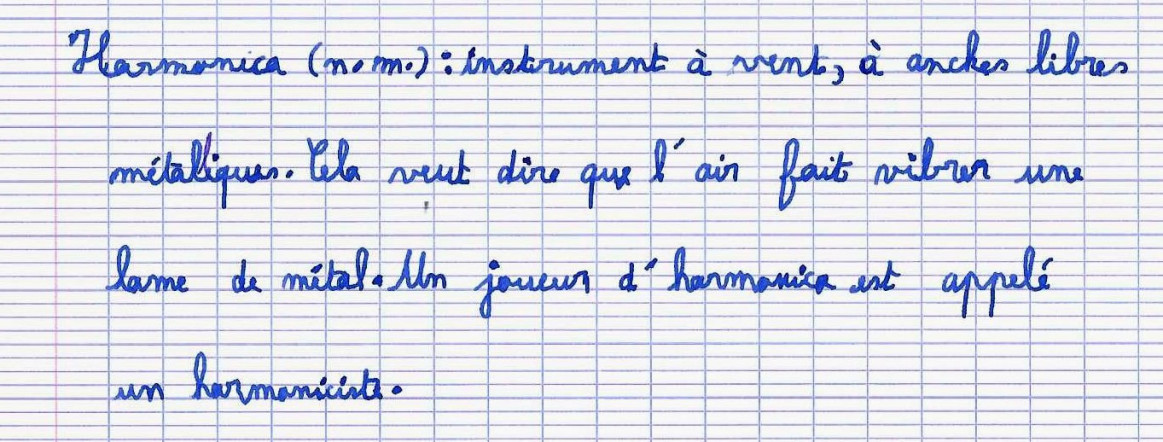 Harmonica (n.m.) : instrument à vent, à anches libres
métalliques. Cela veut dire que l'air fait vibrer une
lame de métal. Un joueur d'harmonica est appelé
un harmoniciste.